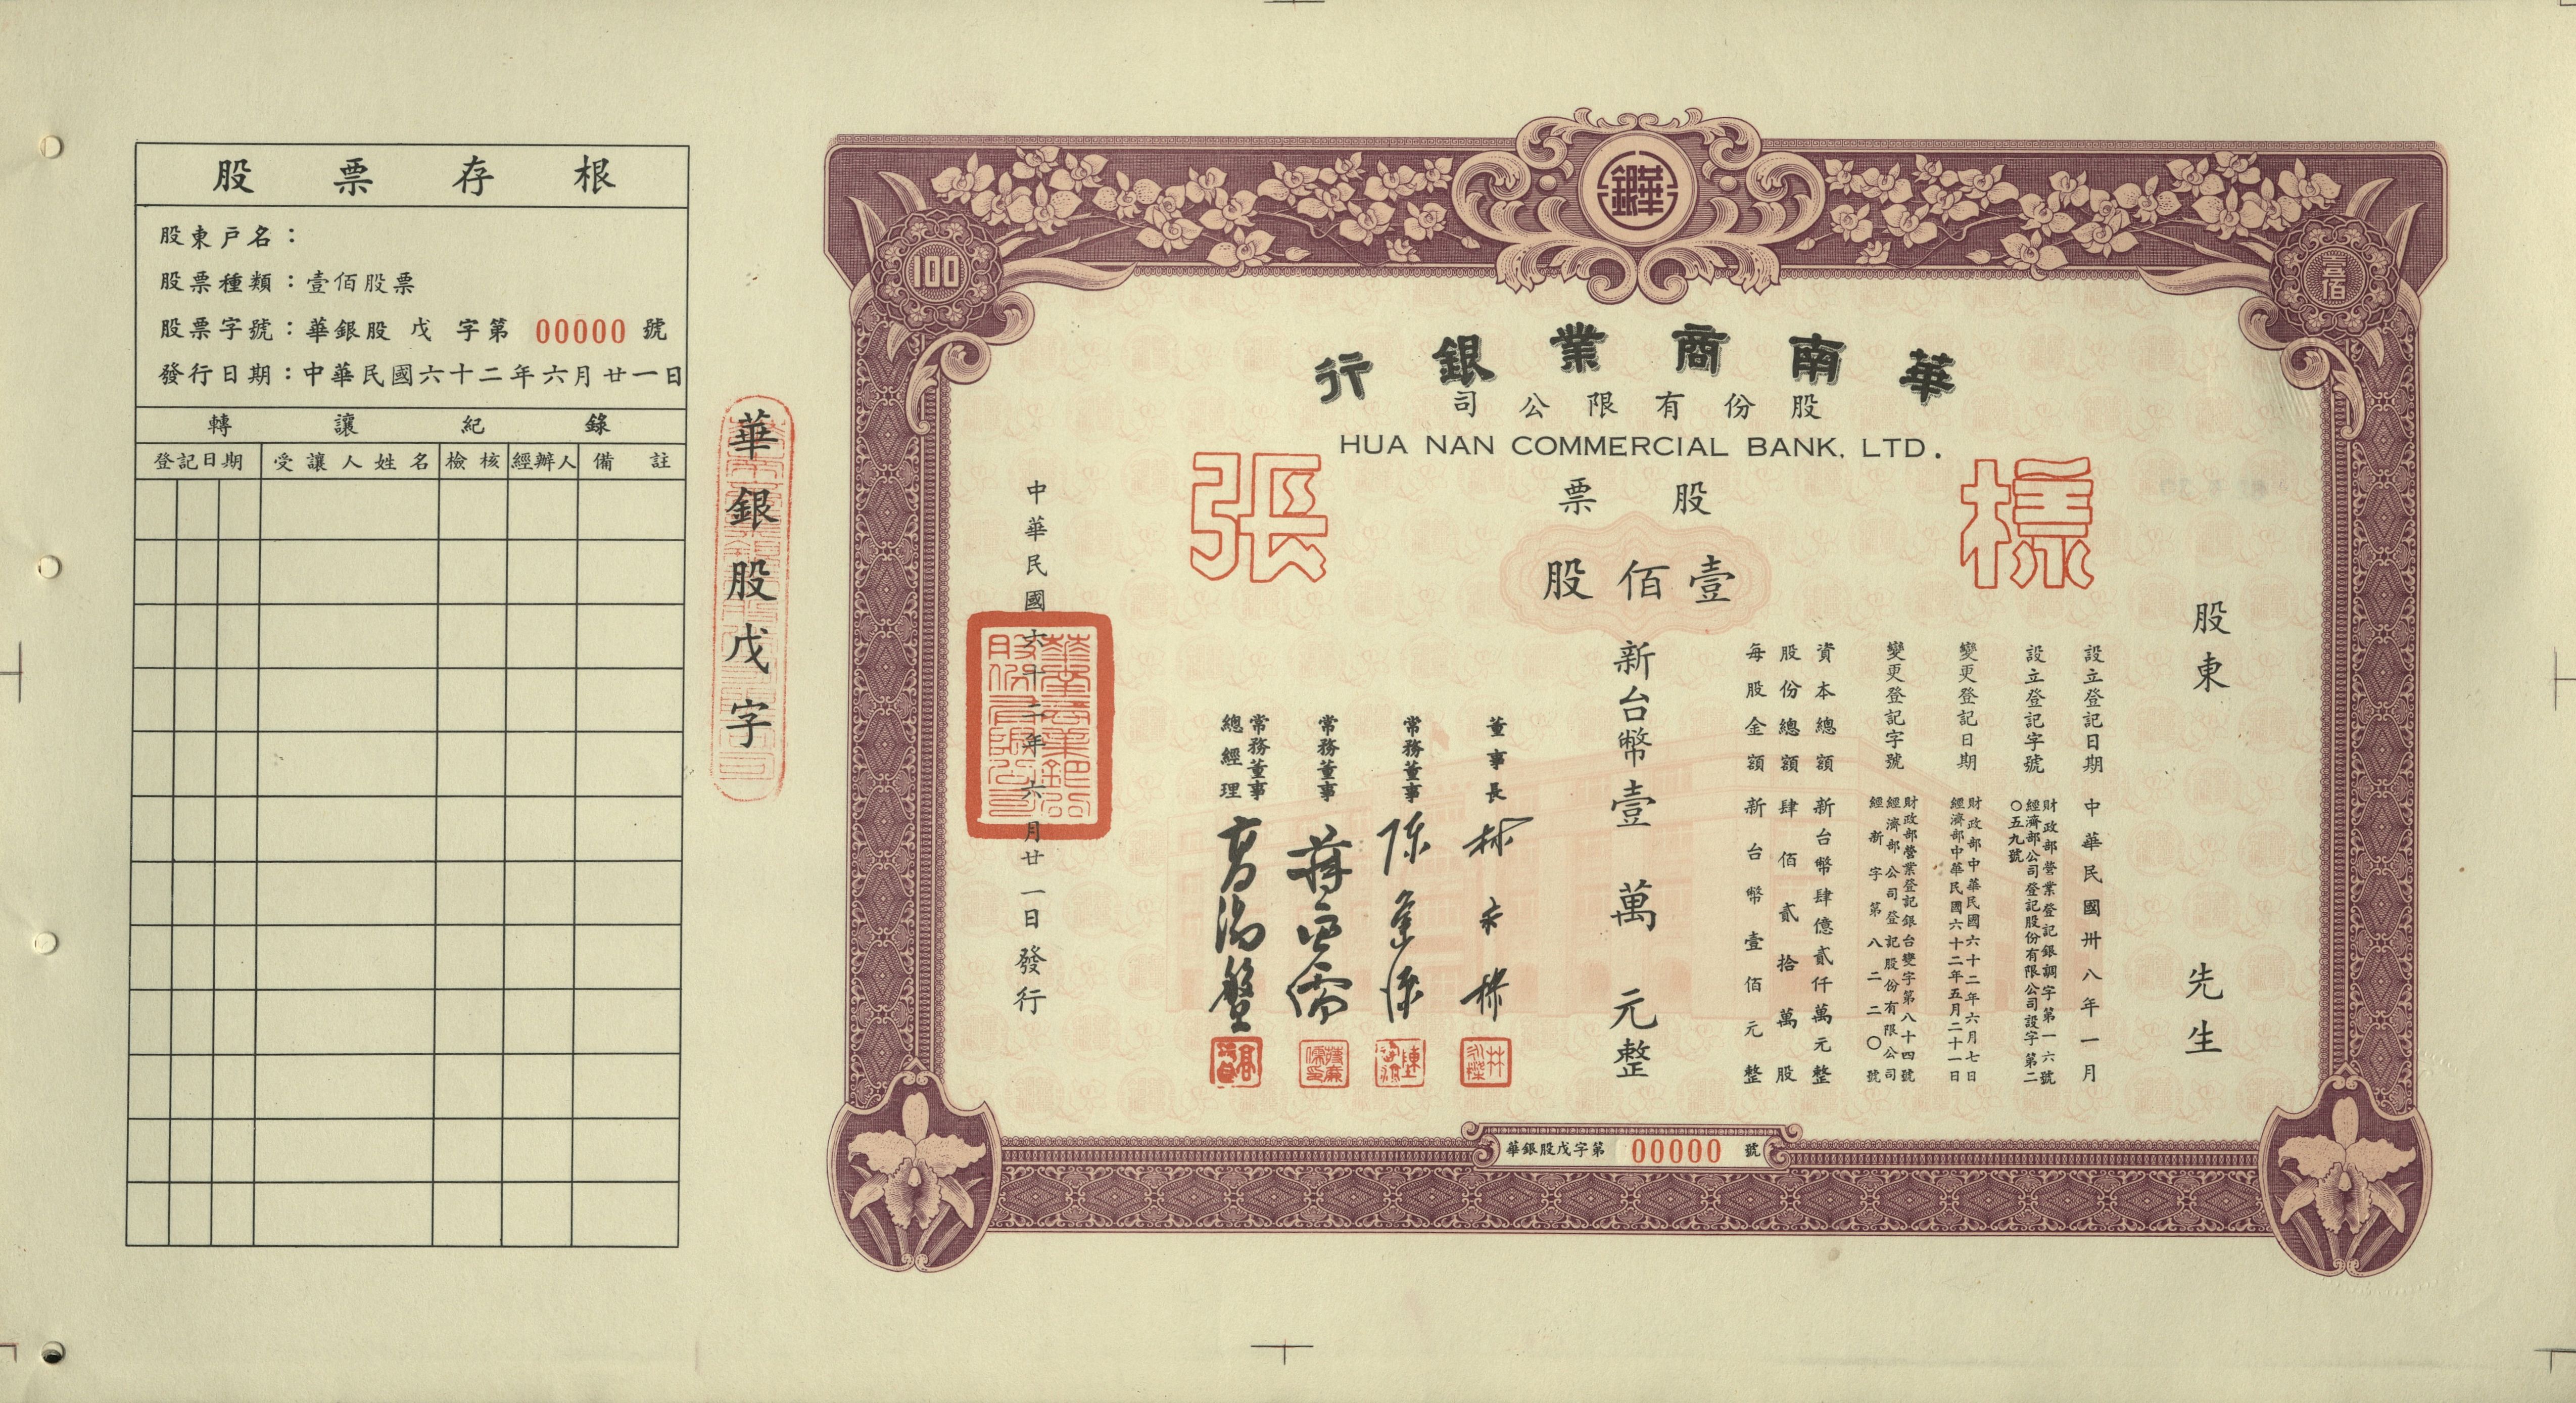 股票存根
股東戶名：
股票種類：壹佰股票
股票字號：華銀股 戊 字第 00000 號
發行日期：中華民國六十二年六月廿一日
轉讓紀錄
登記日期 受讓人姓名 檢核 經辦人 備註
華銀股戊字
100
壹佰
華南商業銀行
股份有限公司
HUA NAN COMMERCIAL BANK, LTD.
樣張
股票
壹佰股
股東 先生
設立登記日期 中華民國卅八年一月
設立登記字號 財政部營業登記銀調字第一六號
經濟部公司登記股份有限公司設字第二〇五九號
變更登記日期 財政部中華民國六十二年六月七日
經濟部中華民國六十二年五月二十一日
變更登記字號 財政部營業登記銀台變字第八十四號
經濟部公司登記股份有限公司
經新字第八二二〇號
資本總額 新台幣肆億貳仟萬元整
股份總額 肆佰貳拾萬股
每股金額 新台幣壹佰元整
新台幣壹萬元整
董事長 林永樑
常務董事
常務董事
常務董事
總經理
中華民國六十二年六月廿一日發行
華銀股戊字第 00000 號